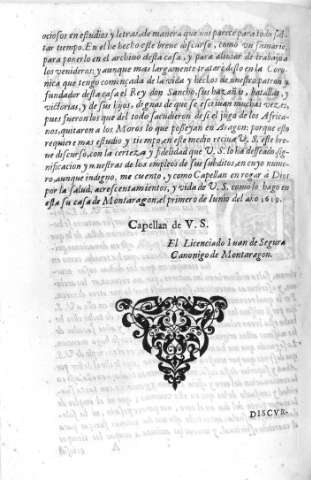 ociosos en estudios y letras, de manera que me parece para todo fal-
tar tiempo. En el he hecho este breve discurso, como un sumario,
para ponerlo en el archivo desta casa, y para aliviar de trabajo a
los venideros: y aunque mas largamente tratare desto en la Cor-
nica que tengo començada de la vida y hechos de nuestro patron y
fundador desta casa el Rey don Sancho, sus hazañas, batallas, y
victorias, y de sus hijos, dignas de que se escrivan muchas vezes,
pues fueron los que del todo sacudieron de si el jugo de los Africa-
nos, quitaron a los Moros lo que posseyan en Aragon: porque esto
requiere mas estudio y tiempo, en este medio reciva V. S. este bre-
ve discurso, con la certeza y fidelidad que V. S. lo ha deseado, sin-
nificacion y muestras de los empleos de sus subditos, en cuyo nume-
ro, aunque indigno, me cuento, y como Capellan en rogar a Dios
por la salud, acrescentamientos, y vida de V. S. como lo hago en
esta su casa de Montaragon, el primero de Iunio del año 1619.
Capellan de V. S.
El Licenciado Iuan de Segura
Canonigo de Montaragon.
DISCVR-